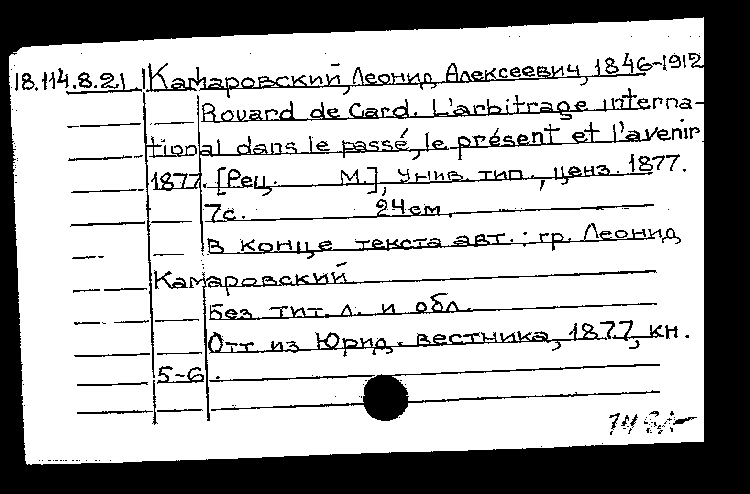 18.114.8.21 Камаровский, Леонид Алексеевич, 1846-1912
Rouard de Card. L'arbitrage interna-
tional dans le passé, le présent et l'avenir
1877. [Рец. М.], Унив. тип., ценз. 1877.
7с. 24см.
В конце текста авт.: гр. Леонид
Камаровский
Без тит. л. и обл.
Отт из Юрид. вестника, 1877, кн.
5-6.